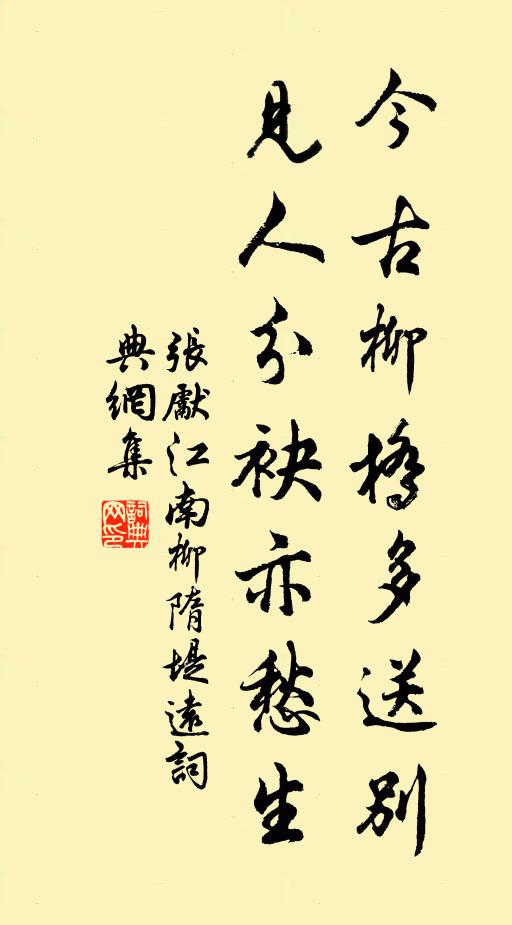 今古柳橋多送別
見人分袂亦愁生
張獻江南柳隋堤遠詞
典網集
詞典
网印